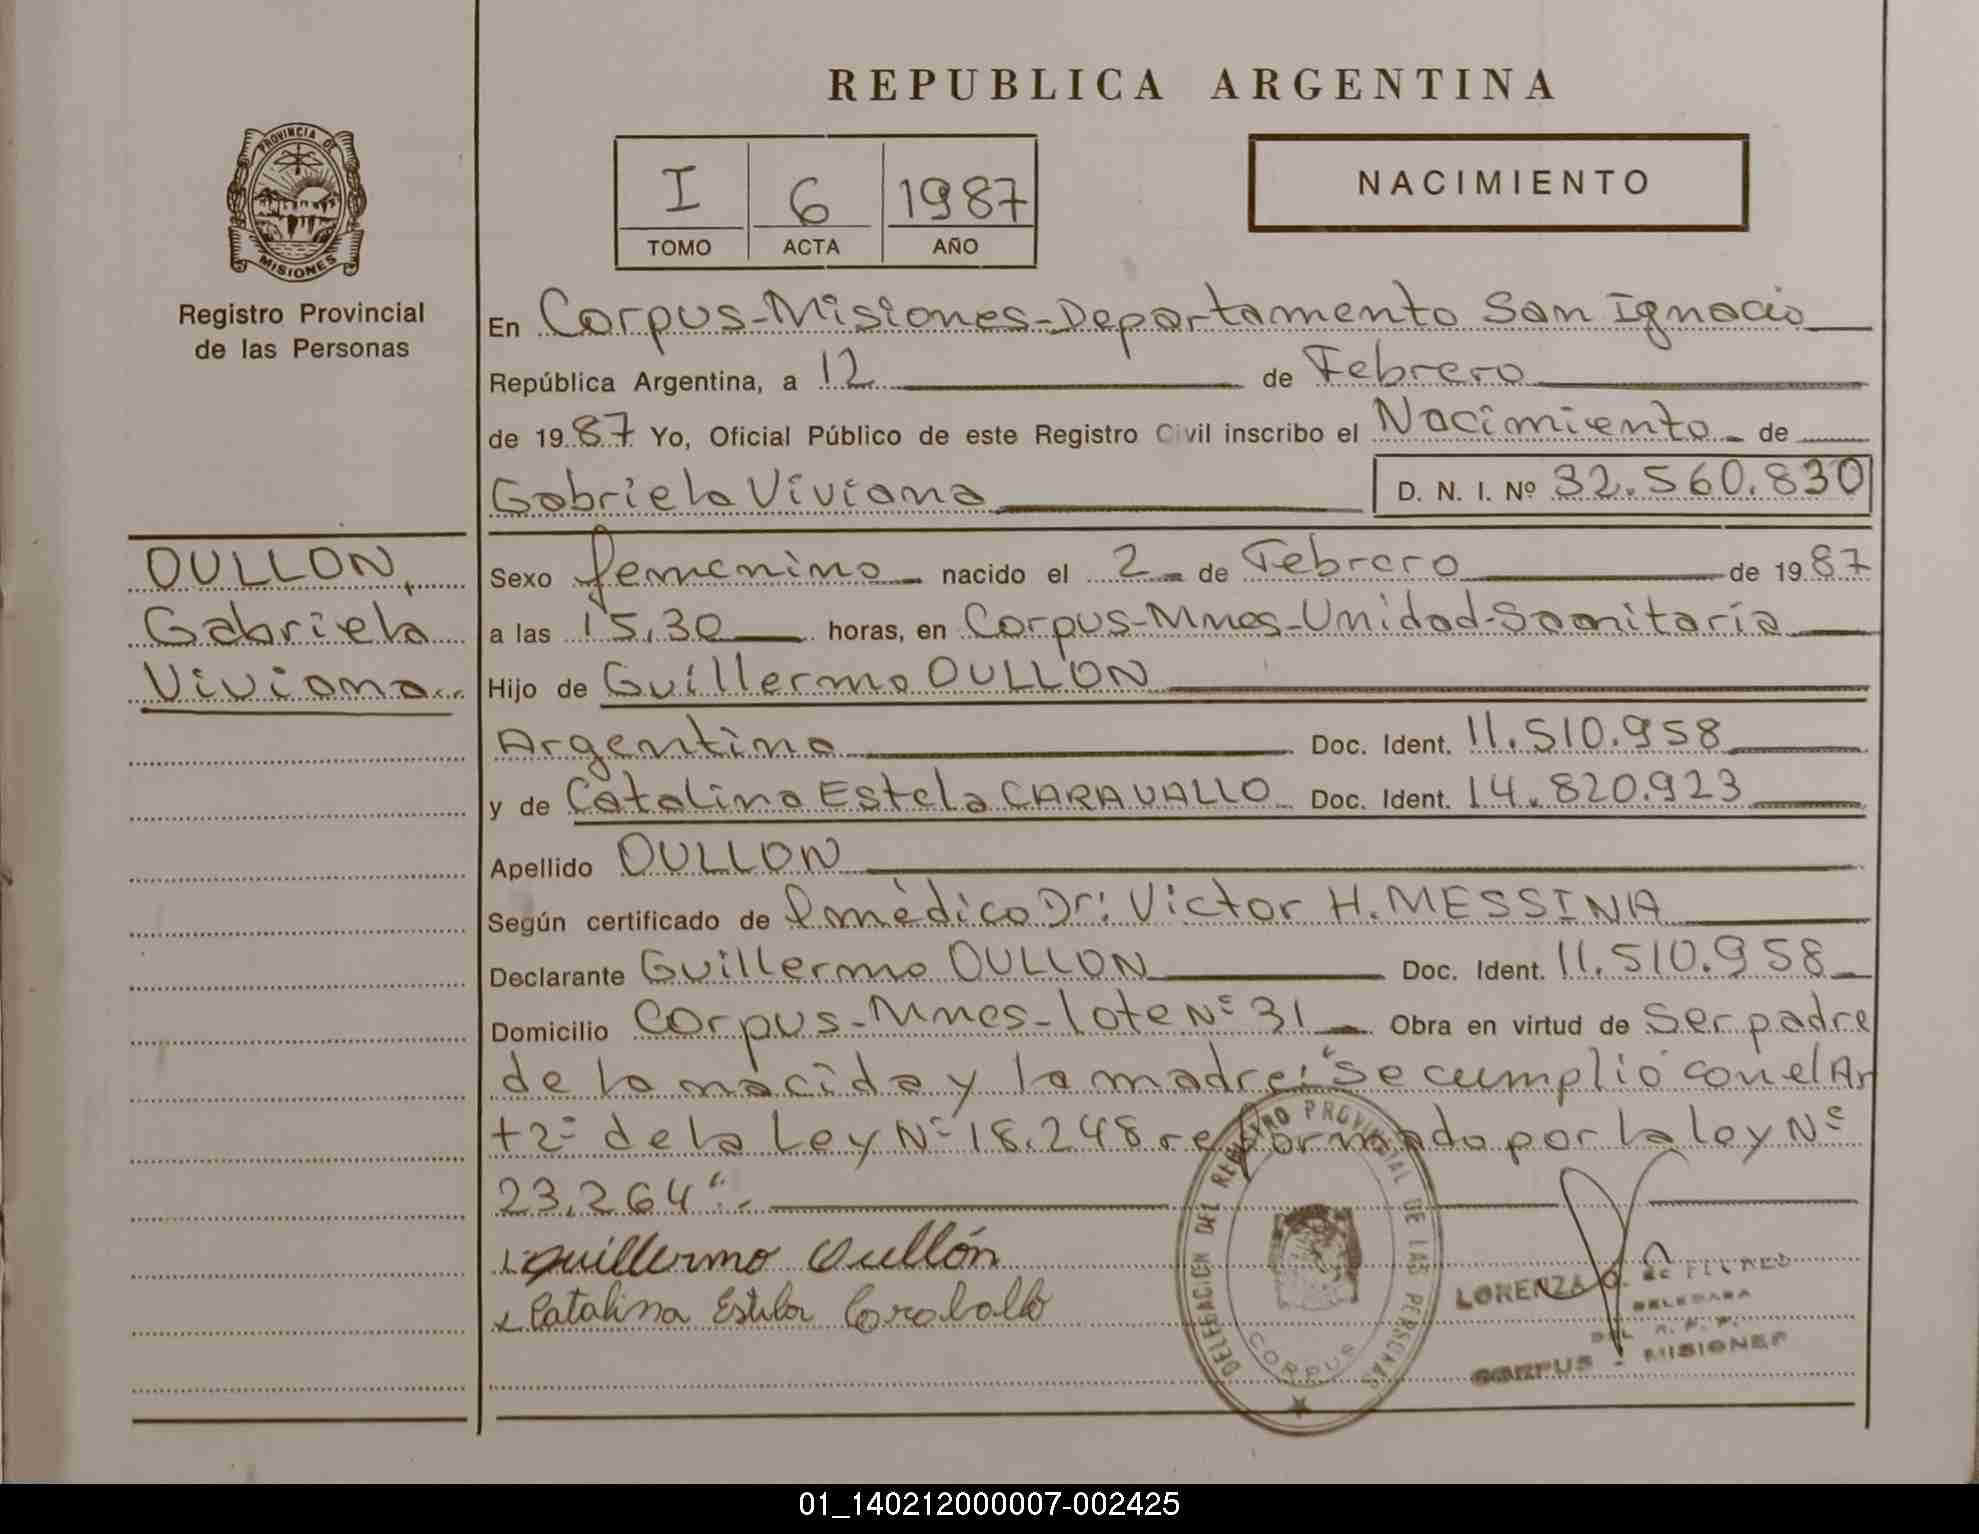 REPUBLICA ARGENTINA
PROVINCIA DE MISIONES
Registro Provincial
de las Personas
I 6 1987
TOMO ACTA AÑO
NACIMIENTO
En Corpus-Misiones-Departamento San Ignacio
República Argentina, a 12 de Febrero
de 1987 Yo, Oficial Público de este Registro Civil inscribo el Nacimiento de
Gabriela Viviana D. N. I. Nº 32.560.830
OULLON,
Gabriela
Viviana
Sexo femenino nacido el 2 de Febrero de 1987
a las 15,30 horas, en Corpus-Mnes-Unidad-Sanitaría
Hijo de Guillermo OULLON
Argentino Doc. Ident. 11.510.958
y de Catalina Estela CARAVALLO Doc. Ident. 14.820.923
Apellido OULLON
Según certificado de médico Dr: Victor H. MESSINA
Declarante Guillermo OULLON Doc. Ident. 11.510.958
Domicilio Corpus-Mnes-lote Nº 31 Obra en virtud de Ser padre
de la nacida y la madre: "Se cumplió con el Ar
t 2º de la Ley Nº 18.248 reformado por la ley Nº
23.264".-
Guillermo Oullón
Catalina Estela Caraballo
DELEGACION DEL REGISTRO PROVINCIAL DE LAS PERSONAS
CORPUS
LORENZA
DELEGADA
CORPUS - MISIONES
01_140212000007-002425